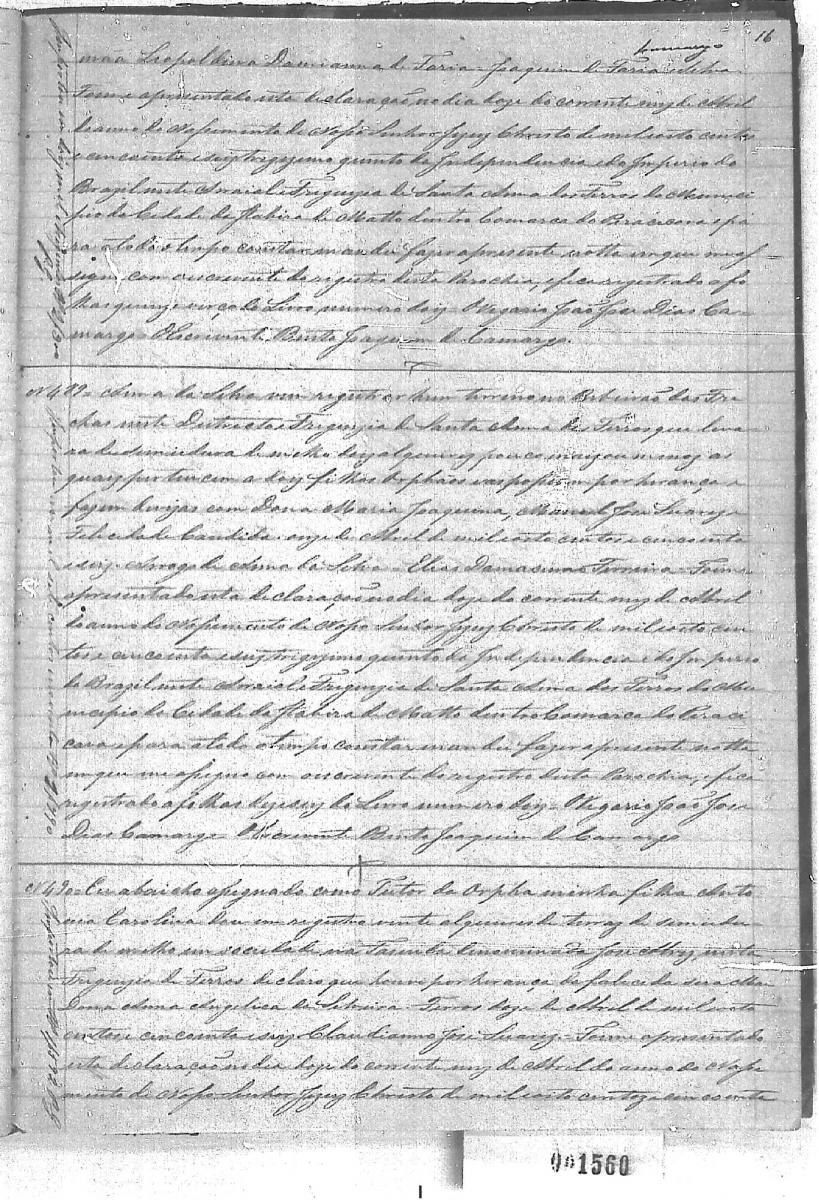 16
Camargo
mão Leopoldina Damianna de Faria - Joaquim de Faria e Silva
Foi me apresentado esta declaração no dia doze do corrente mez de Abril
do anno do Nascimento de Nosso Senhor Jezuz Christo de mil e oito centos
e cincoenta e seiz trigezimo quinto da Independencia e do Imperio do
Brazil neste Arraial e Freguezia de Santa Anna dos Ferros do Munici
pio da Cidade da Itabira de Matto dentro Comarca do Piracicava e pa
ra a todo o tempo constar mandei fazer a presente notta em que me as
signo com o escrevente do registro desta Parochia, e fica registrado a fo
lhas quinze verço do Livro numero doiz - O Vegario João Joze Dias Ca-
margo - O Escrivente Bento Joaquim de Camargo.
Nº 489= Anna da Silva vem registrar hum terreno no Ribeirão das Fre
chas neste Destricto e Freguezia de Santa Anna de Ferros que leva
ra de semiadura de milho doiz alqueirez pouco maiz ou menoz as
quaiz pertencem a doiz filhos Orphãos e as possuem por herança e
fazem divizas com Dona Maria Joaquina, Manoel Joze Suarez e
Felicidade Candida. onze de Abril de mil e oito centos e cincoenta
e seiz. Arrogo de Anna da Silva - Elias Damasceno Ferreira - Foi me
apresentado esta declaração no dia doze do corrente mez de Abril
do anno do Nascimento de Nosso Senhor Jezuz Christo de mil e oito cen
tos e cincoenta e seiz trigezimo quinto da Independencia e do Imperio
do Brazil neste Arraial e Freguezia de Santa Anna dos Ferros do Mu
nicipio da Cidade da Itabira de Matto dentro Comarca do Piraci
cava e para a todo o tempo constar mandei fazer a presente notta
em que me assigno com o escrevente do registro desta Parochia, e fica
registrado a folhas dezeseiz do Livro numero doiz - O Vegario João Joze
Dias Camargo - O Escrevente Bento Joaquim de Camargo
Nº 490= Eu abaicho assignado como Tutor da Orpha minha filha Anto
nia Carolina dou em registro vinte alqueires de terraz de semiadu
ra de milho em sociedade na Fazenda denominada Joze Alvez nesta
Freguezia de Ferros declaro que houve por herança da falecida sua Mai
Dona Anna Angelica da Silveira - Ferros doze de Abril de mil e oito
centos e cincoenta e seiz Claudianno Joze Suarez - Foi me apresentado
esta declaração no dia doze do corrente mez de Abril do anno do Nasci
mento de Nosso Senhor Jezuz Christo de mil e oito centos e cincoenta
001560